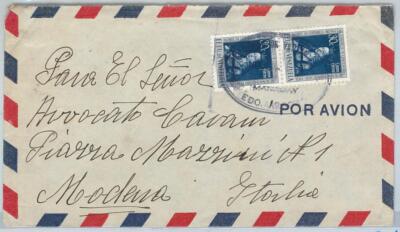 MARACAY
EDO. ARAGUA
POR AVION
Para El Señor
Avvocato Cavani
Piazza Mazzini Nº 1
Modena Italia